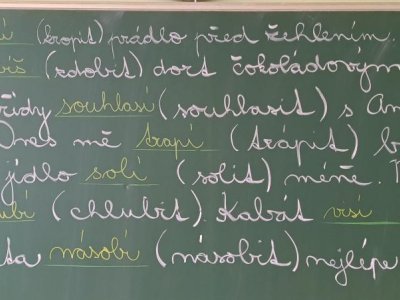 (kropit) prádlo před žehlením.
(zdobit) dort čokoládovým
řídy souhlasí (souhlasit) s An
Dnes mě trapí (trápit) b
jídlo solí (solit) méně.
ubí (chlubit) Kabát visí
ta násobí (násobit) nejlépe